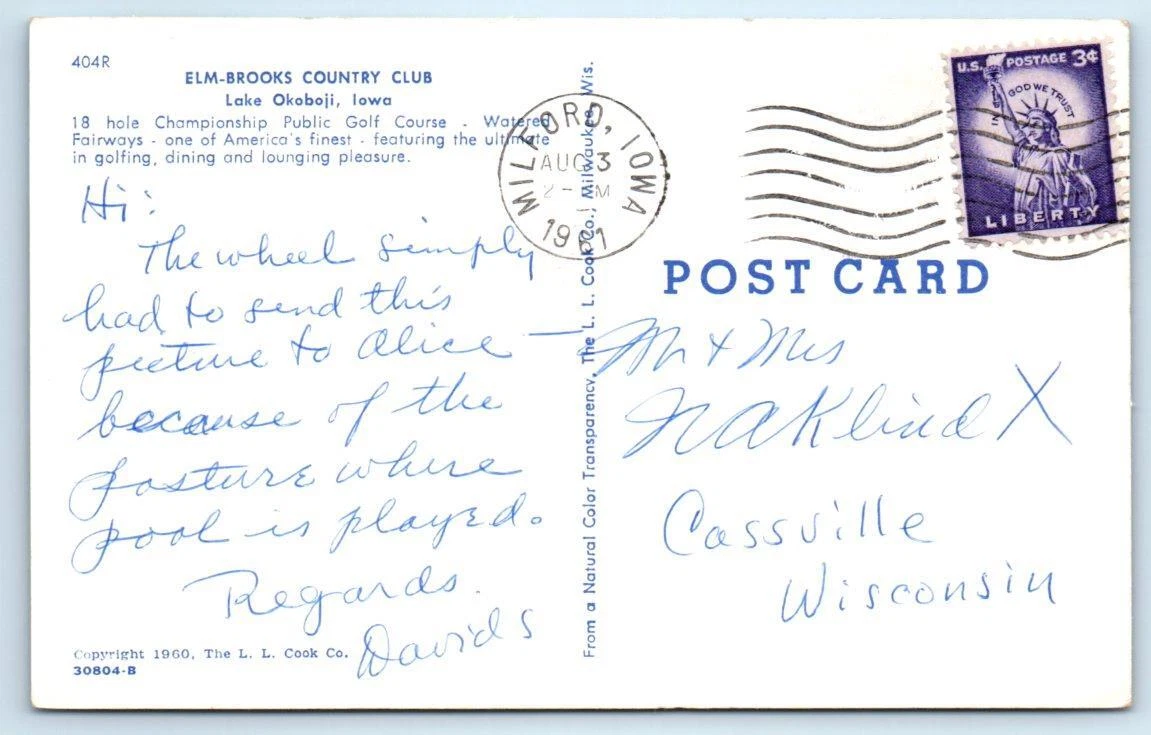 404R
ELM-BROOKS COUNTRY CLUB
Lake Okoboji, Iowa
18 hole Championship Public Golf Course - Watered
Fairways - one of America's finest - featuring the ultimate
in golfing, dining and lounging pleasure.
Hi:
The wheel simply
had to send this
picture to Alice —
because of the
posture where
pool is played.
Regards.
Davids
Copyright 1960, The L. L. Cook Co.
30804-B
From a Natural Color Transparency, The L. L. Cook Co., Milwaukee, Wis.
MILFORD, IOWA
AUG 3
2- M
1961
U.S. POSTAGE 3¢
IN GOD WE TRUST
LIBERTY
POST CARD
Mr + Mrs
Klind X
Cassville
Wisconsin